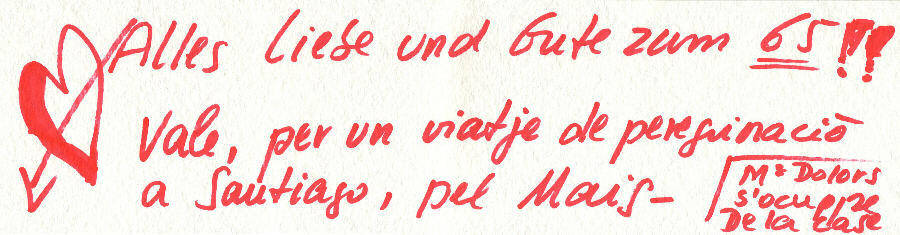 Alles Liebe und Gute zum 65!!!
Vale, per un viatje de peregrinació
a Santiago, pel Mais-
Mª Dolors
s'ocupe
De la clase